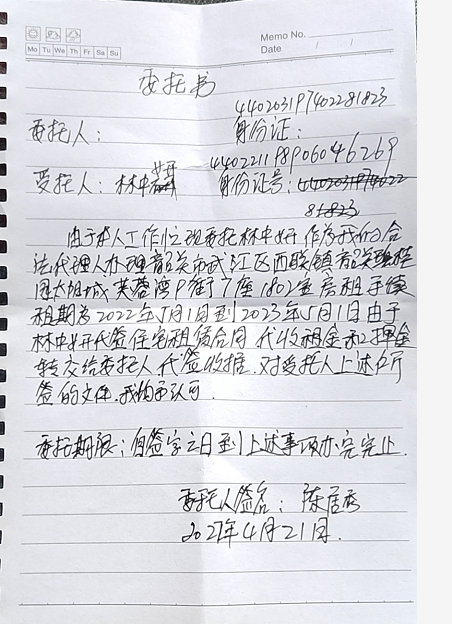 Memo No.
Mo Tu We Th Fr Sa Su
Date / /
委托书
440203197402281823
委托人： 身份证：
440221198906046269
受托人：林中好 身份证号：
81823
由于本人工作忙现委托林中好作为我的合
法代理人办理韶关市武江区西联镇韶关碧桂
园太阳城芙蓉湾P街7座1802室房租手续
租期为2022年5月1日到2023年5月1日由于
林中好代签住宅租赁合同代收租金和押金
转交给委托人代签收据.对受托人上述所
签的文件.我均承认可.
委托期限：自签字之日到上述事项办完完止.
委托人签名：陈居秀
2022年4月21日.